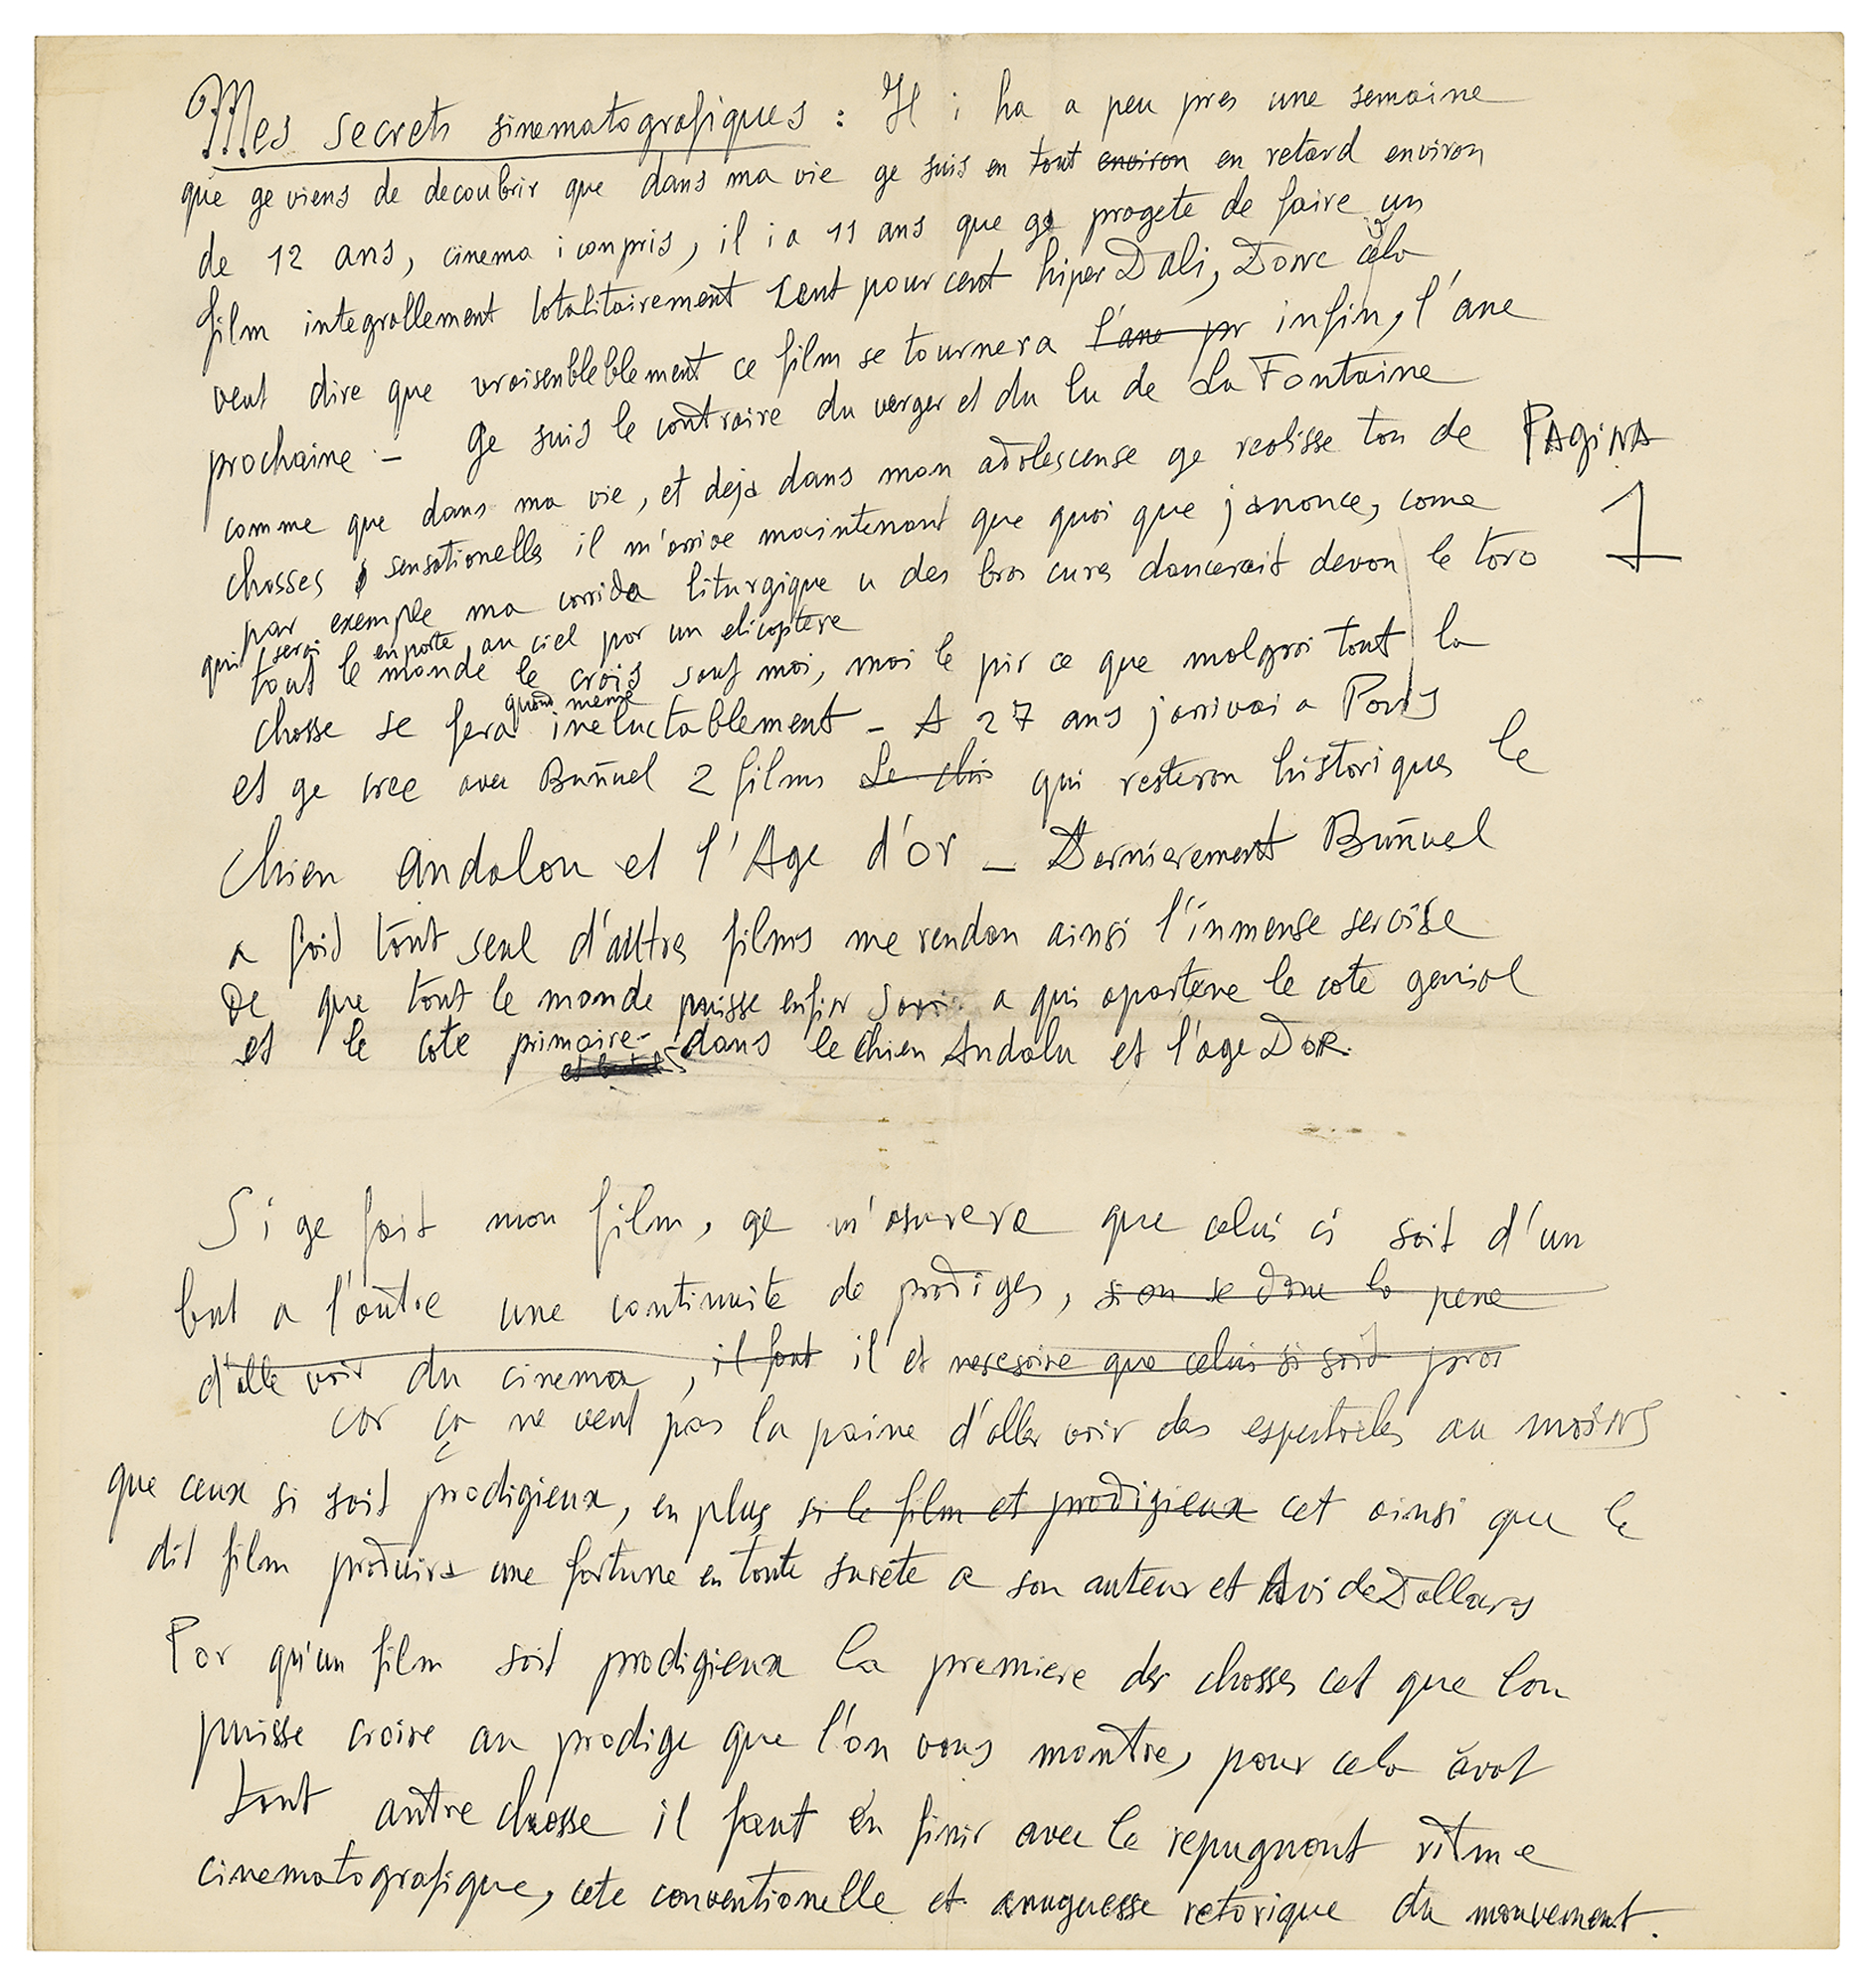 Mes secrets sinematografiques : Il i ha a peu pres une semaine
que ge viens de decoubrir que dans ma vie ge suis en tout environ en retard environ
de 12 ans, cinema i conpris, il i a 11 ans que ge progete de faire un
film integrallement totalitairement cent pour cent hiper Dali, Donc cela
veut dire que vraisenblebblement ce film se tournera l'ane pr infin, l'ane
prochaine - ge suis le contraire du verger et du lu de La Fontaine
comme que dans ma vie, et deja dans mon adolescense ge realisse ton de
PAgiNA
1
chosses sensationelles il m'arrive maintenant que quoi que j'anonce, come
par exemple ma corrida liturgique u des bros cures dancerait devan le toro
qui serai enporte au ciel por un elicoptere
tout le monde le crois sauf moi, moi le pir ce que malgrai tout la
chosse se fera quand meme ineluctablement - A 27 ans j'arrivai a Paris
et ge cree avec Buñuel 2 films Le chi qui resteron historiques le
chien andalou et l'Age d'or - Dernierement Buñuel
a faid tout seul d'autres films me rendan ainsi l'inmense servise
De que tout le monde puisse enfin savoir a qui apartene le cote genial
et le cote primaire - dans le chien Andalu et l'age DoR.
Si ge fait mon film, ge m'asurere que celui ci soit d'un
but a l'outre une continuite de prodiges, si on se done la pene
d'alle voir du cinema, il faut il et nesesaire que celui si soit pros
car ça ne veut pas la paine d'aller voir des espectacles au moins
que ceux si soit prodigieux, en plus si le film et prodigieux cet ainsi que le
dit film produira une fortune en toute surete a son auteur et Avi de Dollars
Por qu'un film soit prodigieux la premiere des chosses cet que l'on
puisse croire au prodige que l'on vous montre, pour cela avat
tout autre chosse il faut en finir avec le repugnant ritme
cinematografique, cete conventionelle et anuguesse retorique du mouvement.